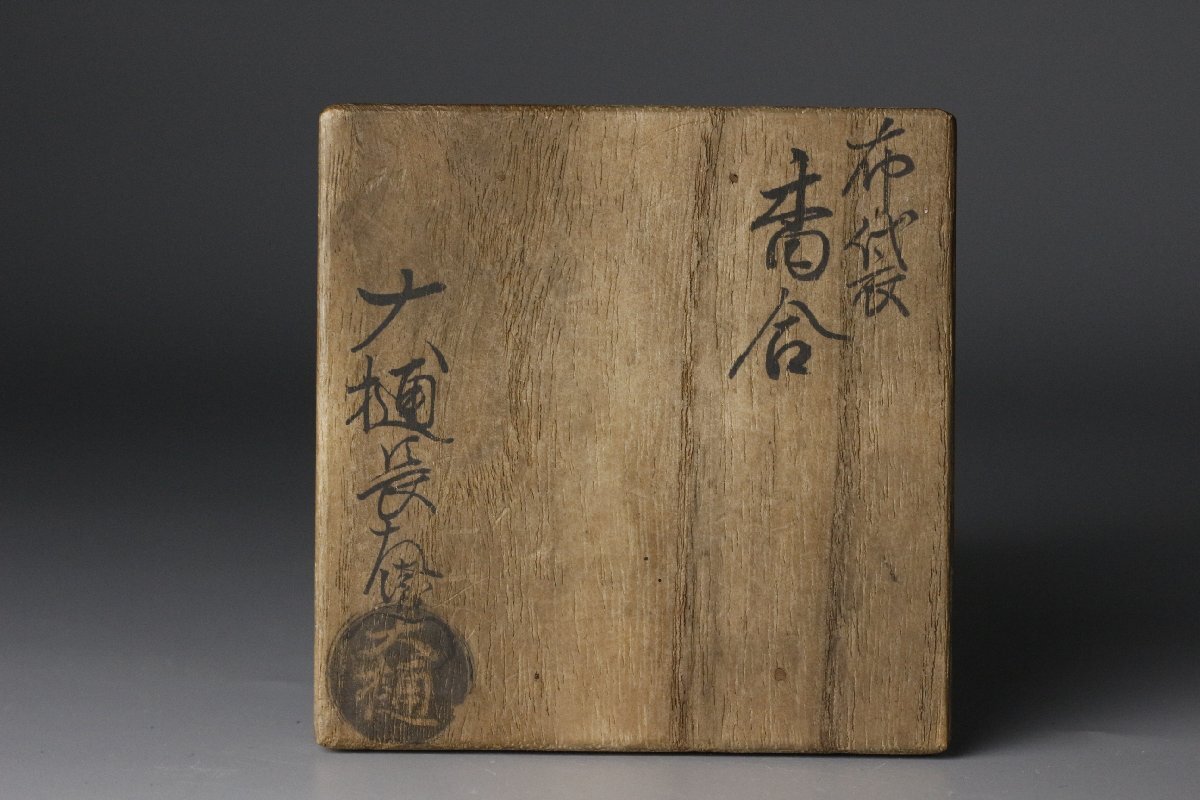 布袋
香合
大樋長左衛門
大樋